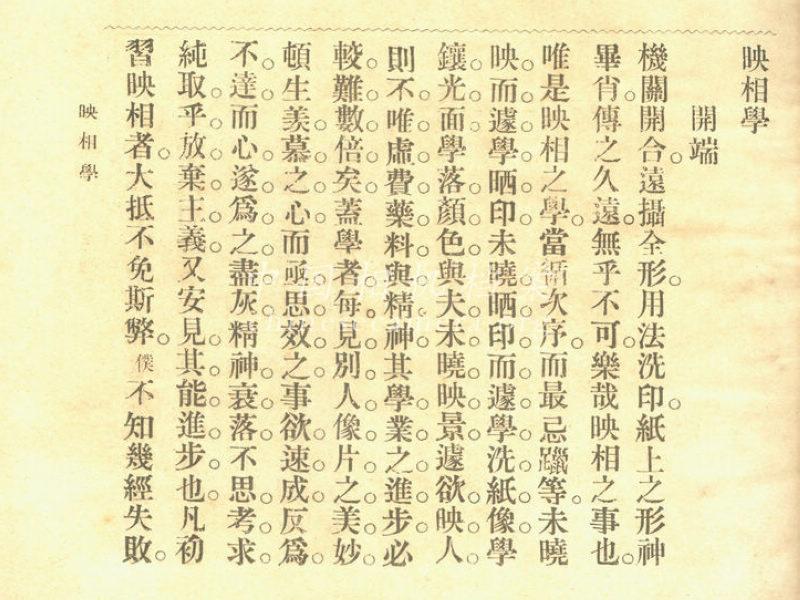 映相學
開端
機關開合。遠攝全形。用法洗印。紙上之形神
畢肖。傳之久遠。無乎不可。樂哉映相之事也。
唯是映相之學。當循次序。而最忌躐等。未曉
映而遽學晒印未曉晒印而遽學洗紙像學
鑲光面學落顏色與夫未曉映景遽欲映人
則不唯虛費藥料與精神其學業之進步必
較難數倍矣蓋學者每見別人像片之美妙
頓生羨慕之心而亟思效之事欲速成反爲
不達而心遂爲之盡灰精神衰落不思考求
純取乎放棄主義又安見其能進步也凡初
習映相者。大抵不免斯弊。僕不知幾經失敗。
映相學